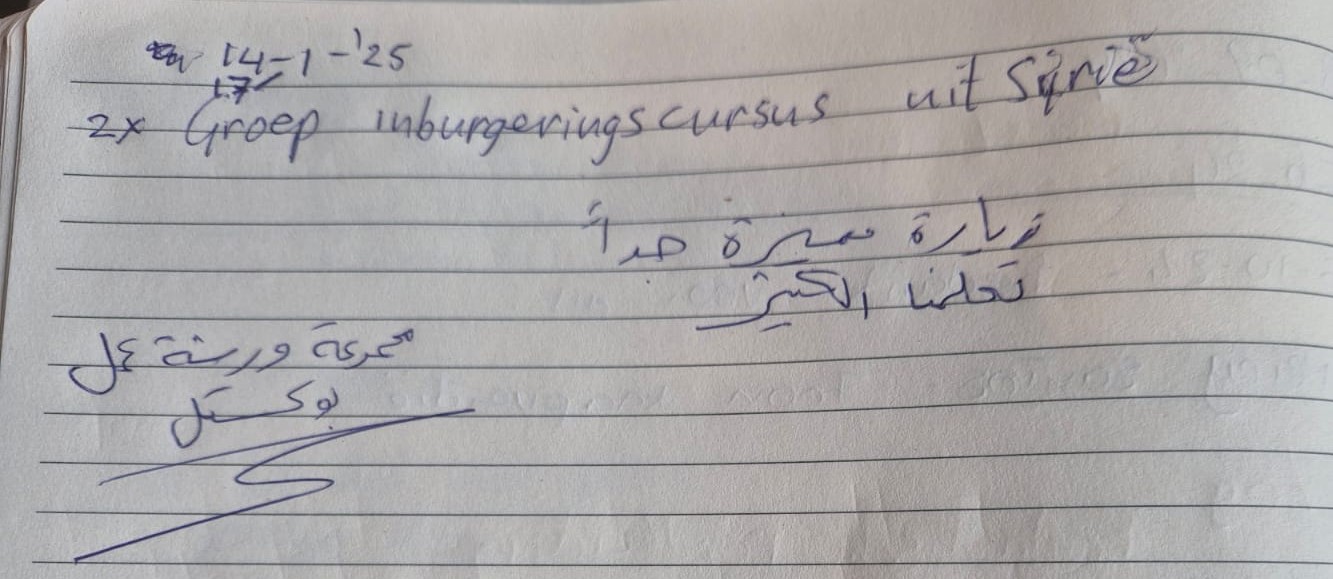 14-1-'25
17/
2x Groep inburgeringscursus uit Syrië
زيارة مميزة جداً
تعلمنا الكثير
مجموعة ورشة عمل
بوكستل